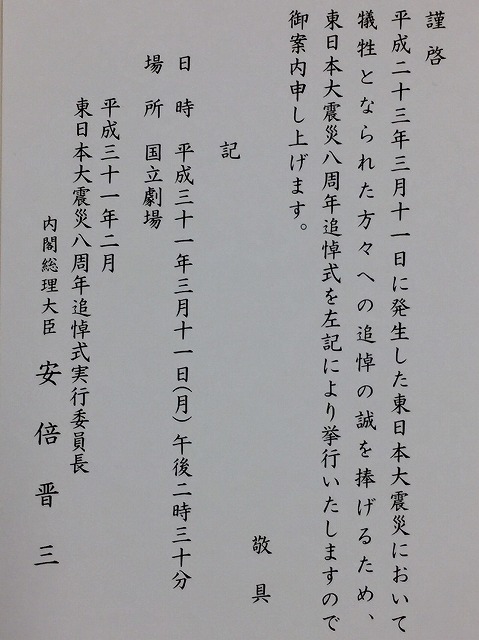 謹啓
平成二十三年三月十一日に発生した東日本大震災において
犠牲となられた方々への追悼の誠を捧げるため、
東日本大震災八周年追悼式を左記により挙行いたしますので
御案内申し上げます。
敬具
記
日時 平成三十一年三月十一日(月)午後二時三十分
場所 国立劇場
平成三十一年二月
東日本大震災八周年追悼式実行委員長
内閣総理大臣 安倍晋三